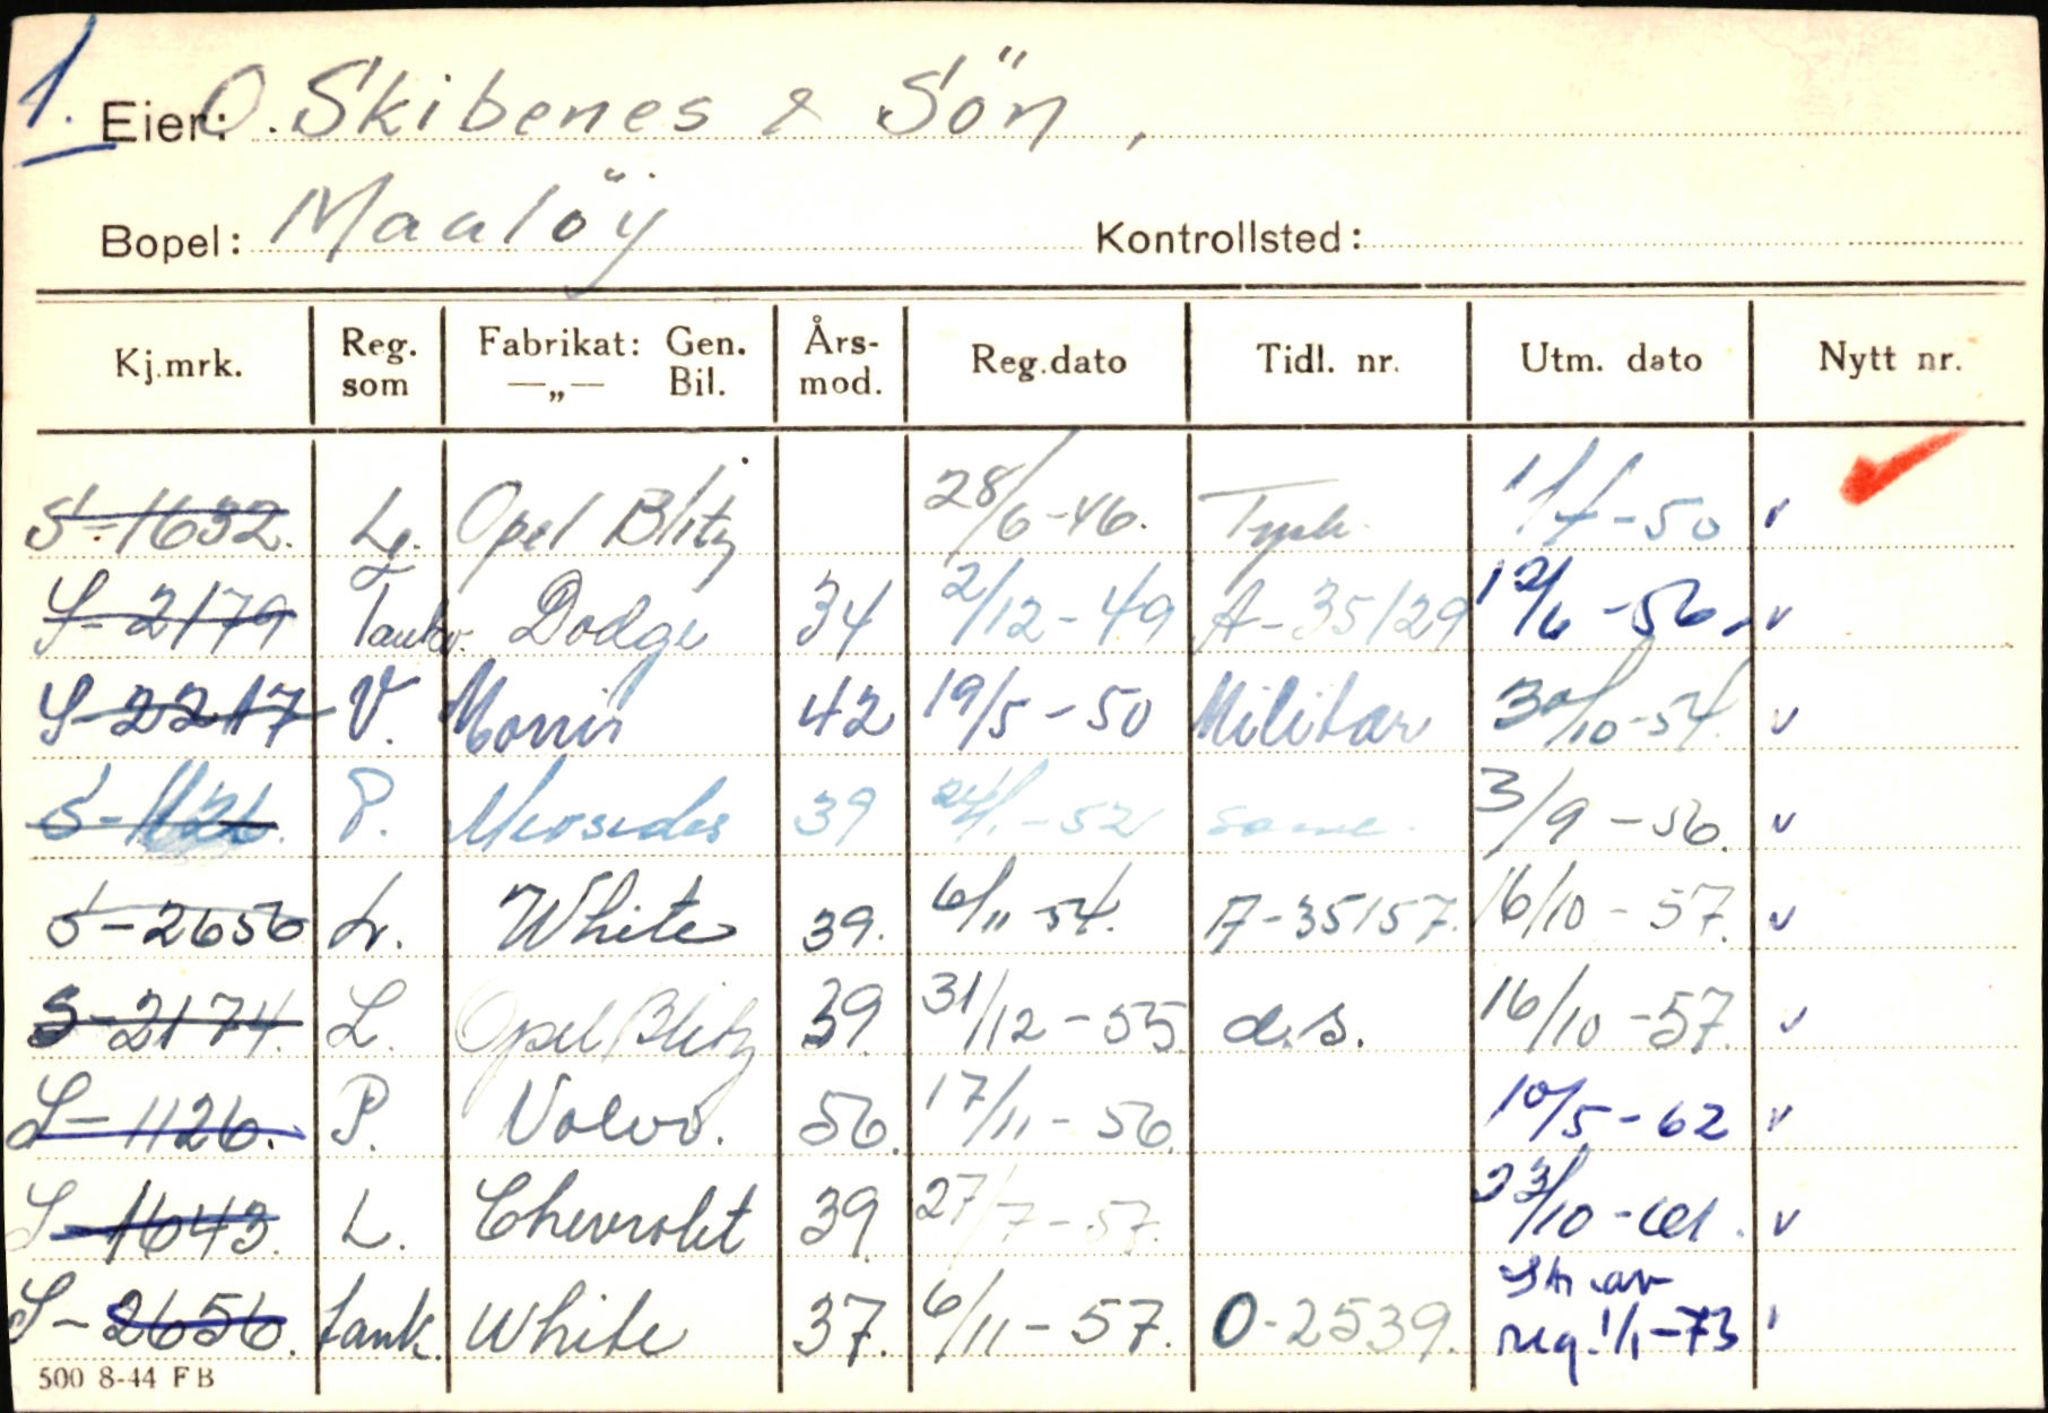 1.
Eier: O. Skibenes & Sön,
Bopel: Maalöy Kontrollsted:
Kj.mrk. Reg. som Fabrikat: Gen. —„— Bil. Års-mod. Reg.dato Tidl. nr. Utm. dato Nytt nr.
S-1632. Lg. Opel Blitz 28/6-46. Tysk. 1/7-50 v
S-2179 Tankv. Dodge 34 2/12-49 A-35129 12/6-56. v
S-2217 V. Morris 42 19/5-50 Militær 30/10-54. v
S-1126. P. Mersedes 39 24/1-52 samme. 3/9-56. v
S-2656 L. White 39. 6/11-54. A-35157. 16/10-57. v
S-2174. L. Opel Blitz 39. 31/12-55 d.s. 16/10-57. v
S-1126. P. Volvo. 56. 17/11-56. 10/5-62 v
S-1643. L. Chevrolet 39. 27/7-57. 23/10-61. v
S-2656. tank. White 37. 6/11-57. O-2539. Str. av reg. 1/1-73
500 8-44 FB